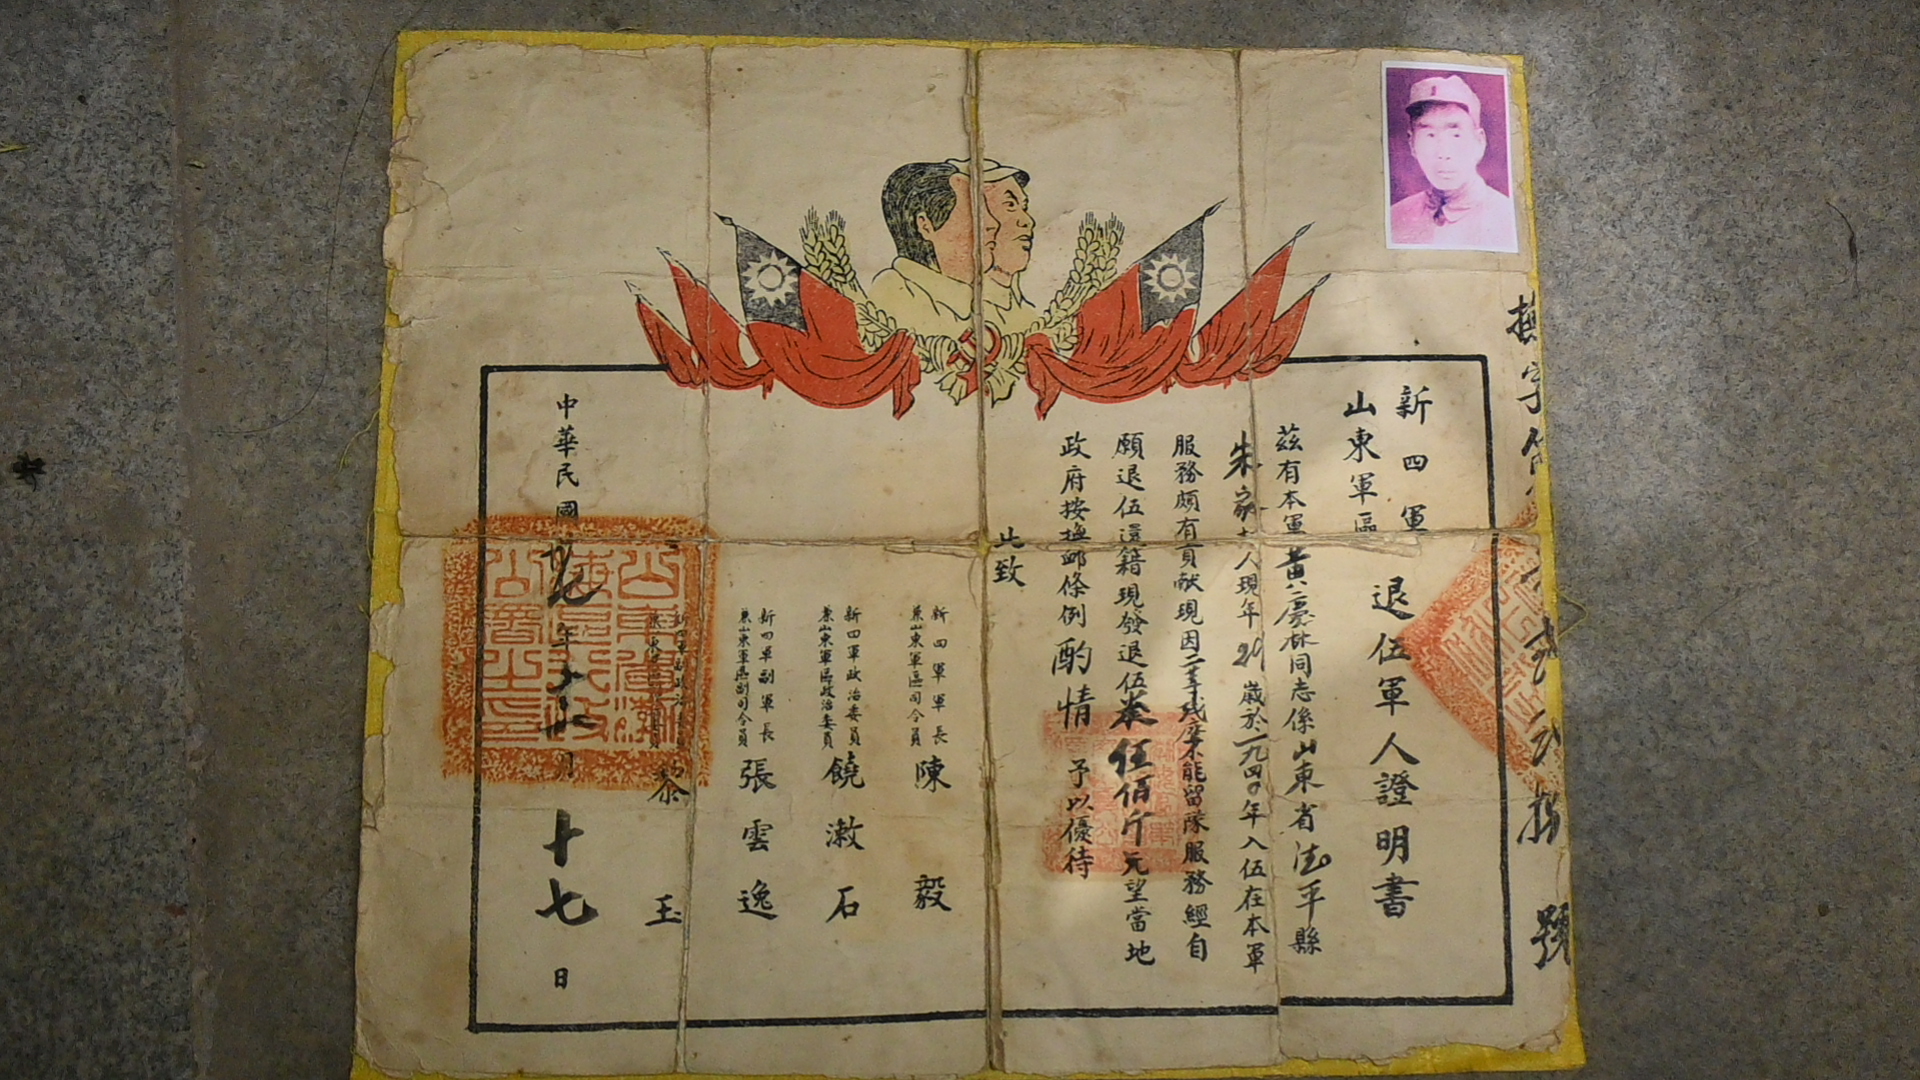 字
號
新四軍
山東軍區
退伍軍人證明書
茲有本軍黃慶林同志係山東省 平縣
朱家 人現年 歲於一九四 年入伍在本軍
服務頗有貢献現因二等残廢不能留隊服務經自
願退伍還籍現發退伍 伍佰斤元望當地
政府按撫卹條例酌情予以優待
此致
新四軍軍長
兼山東軍區司令員
陳毅
新四軍政治委員
兼山東軍區政治委員
饒漱石
新四軍副軍長
兼山東軍區副司令員
張雲逸
黎玉
中華民國 年 月十七日